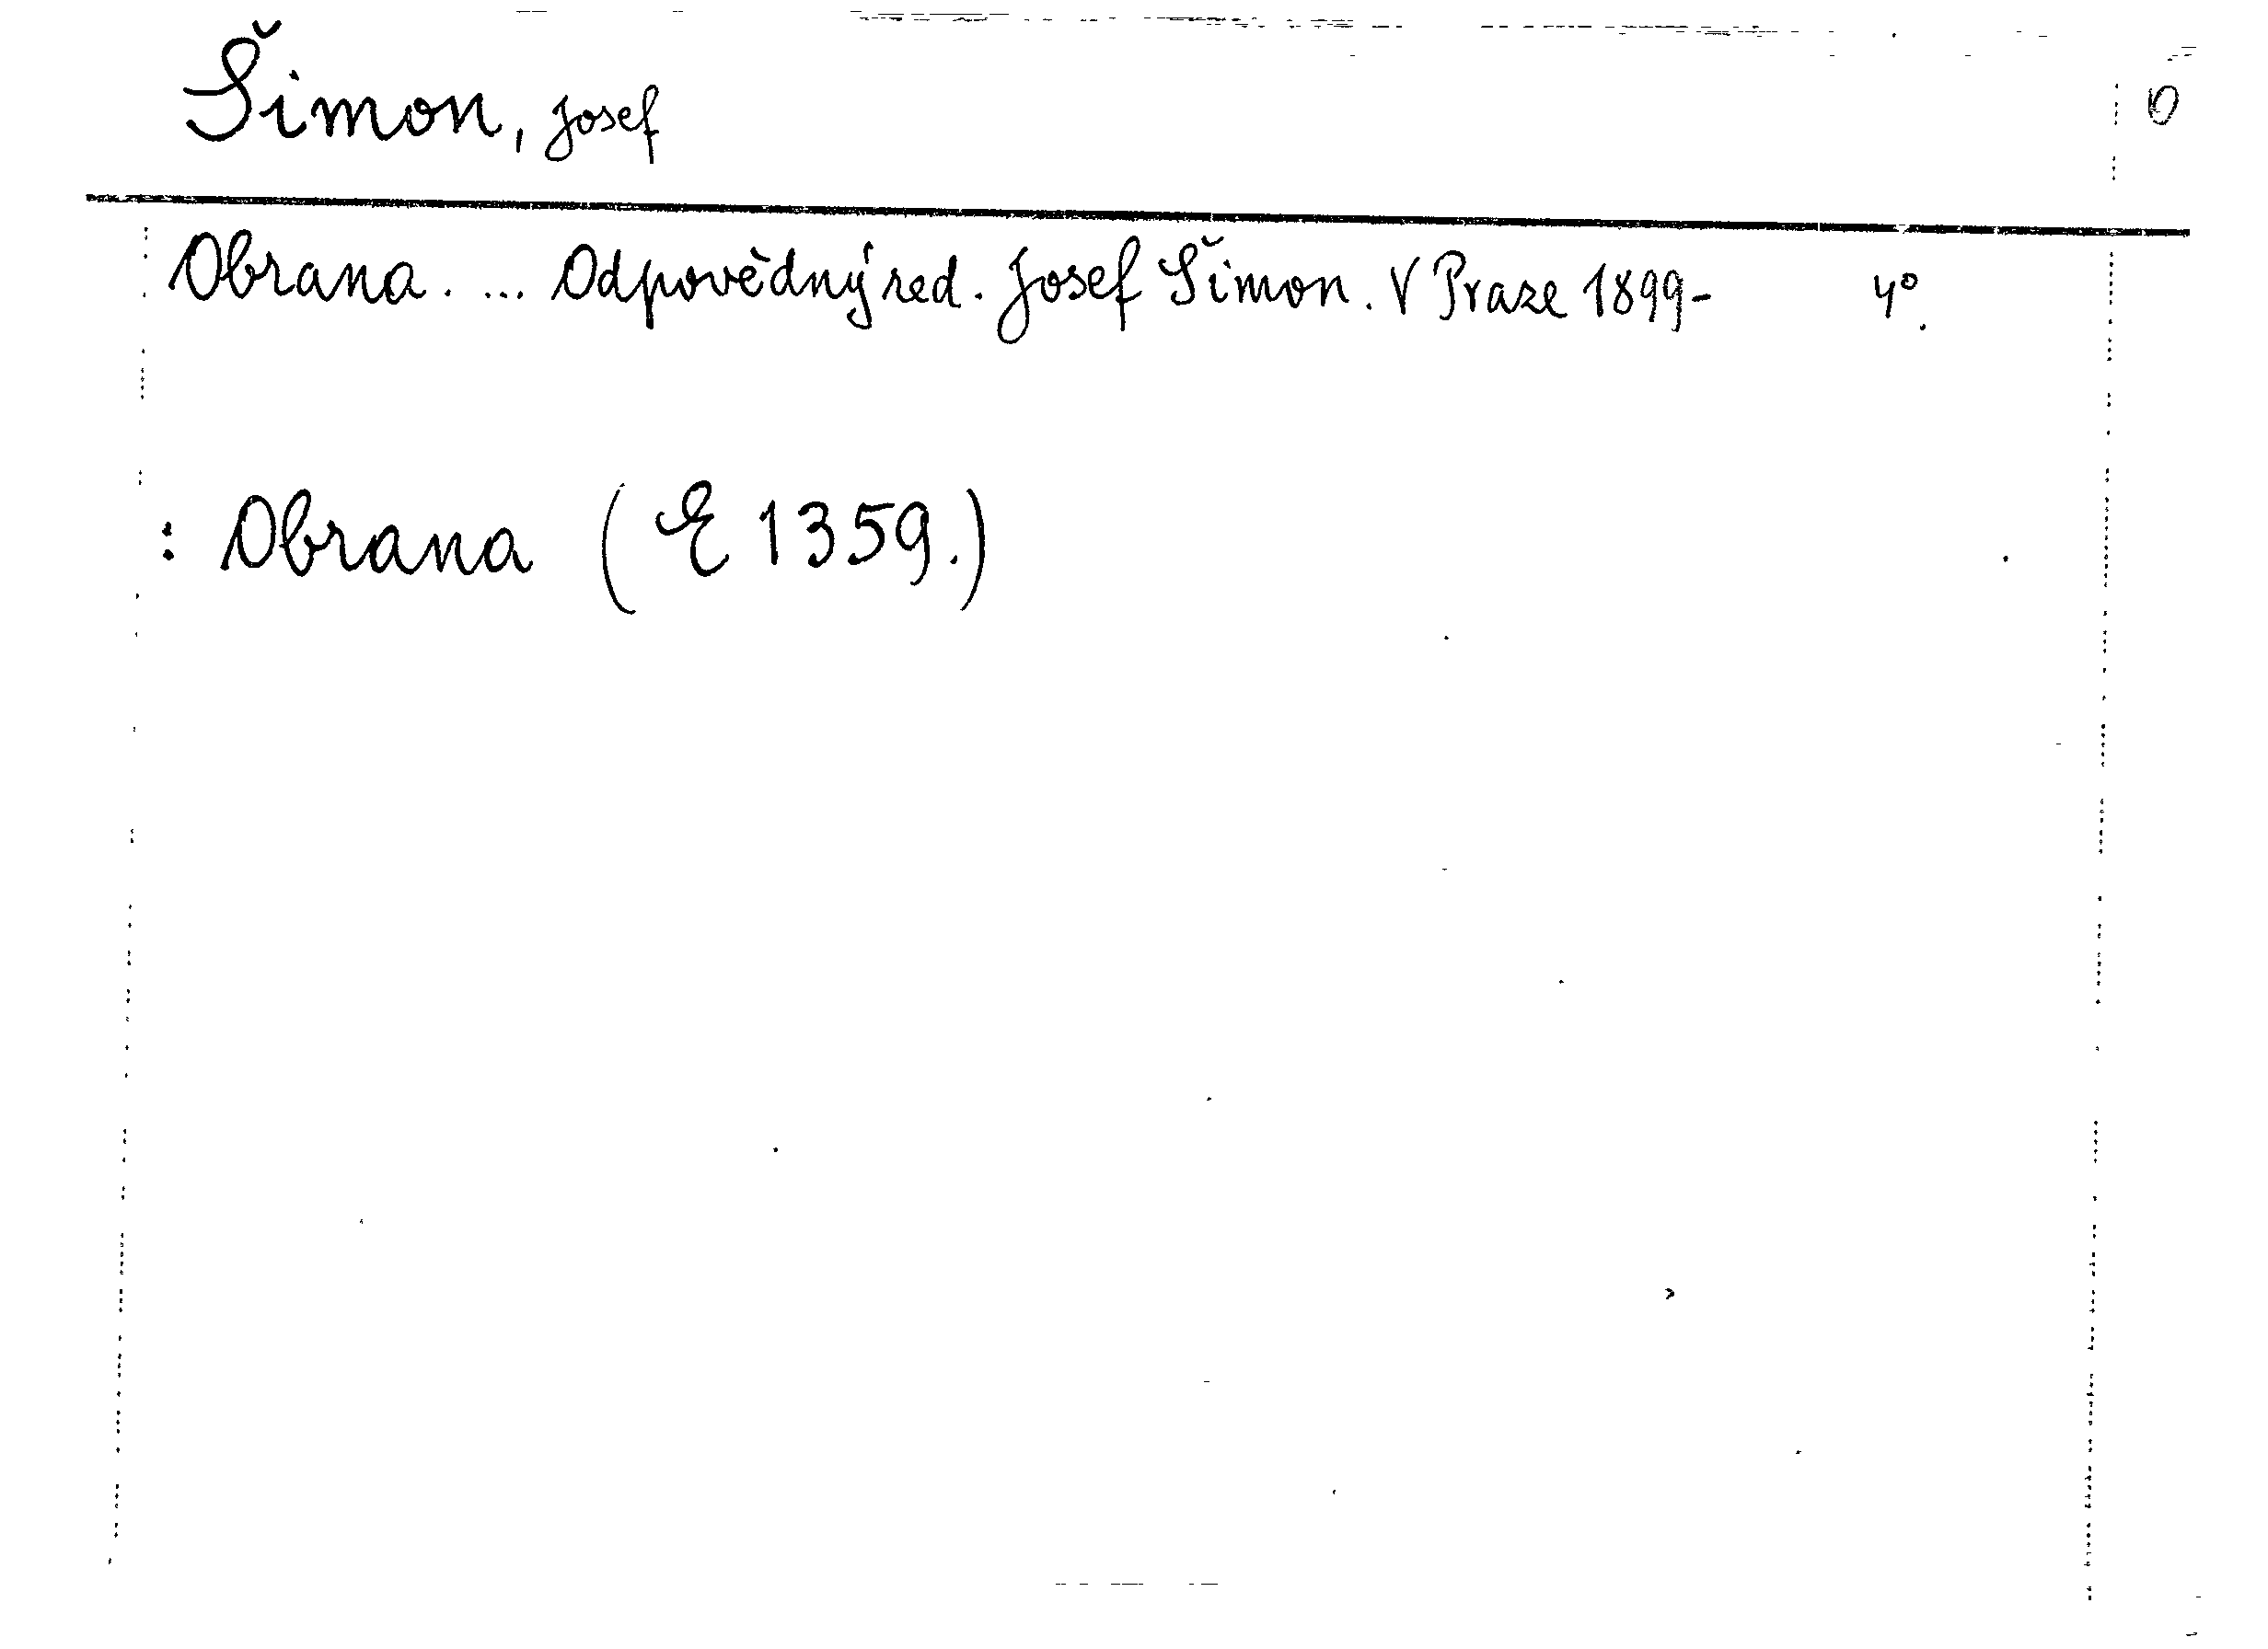 Šimon, Josef
O
Obrana. ... Odpovědný red. Josef Šimon. V Praze 1899- 4°.
: Obrana (E 1359.)